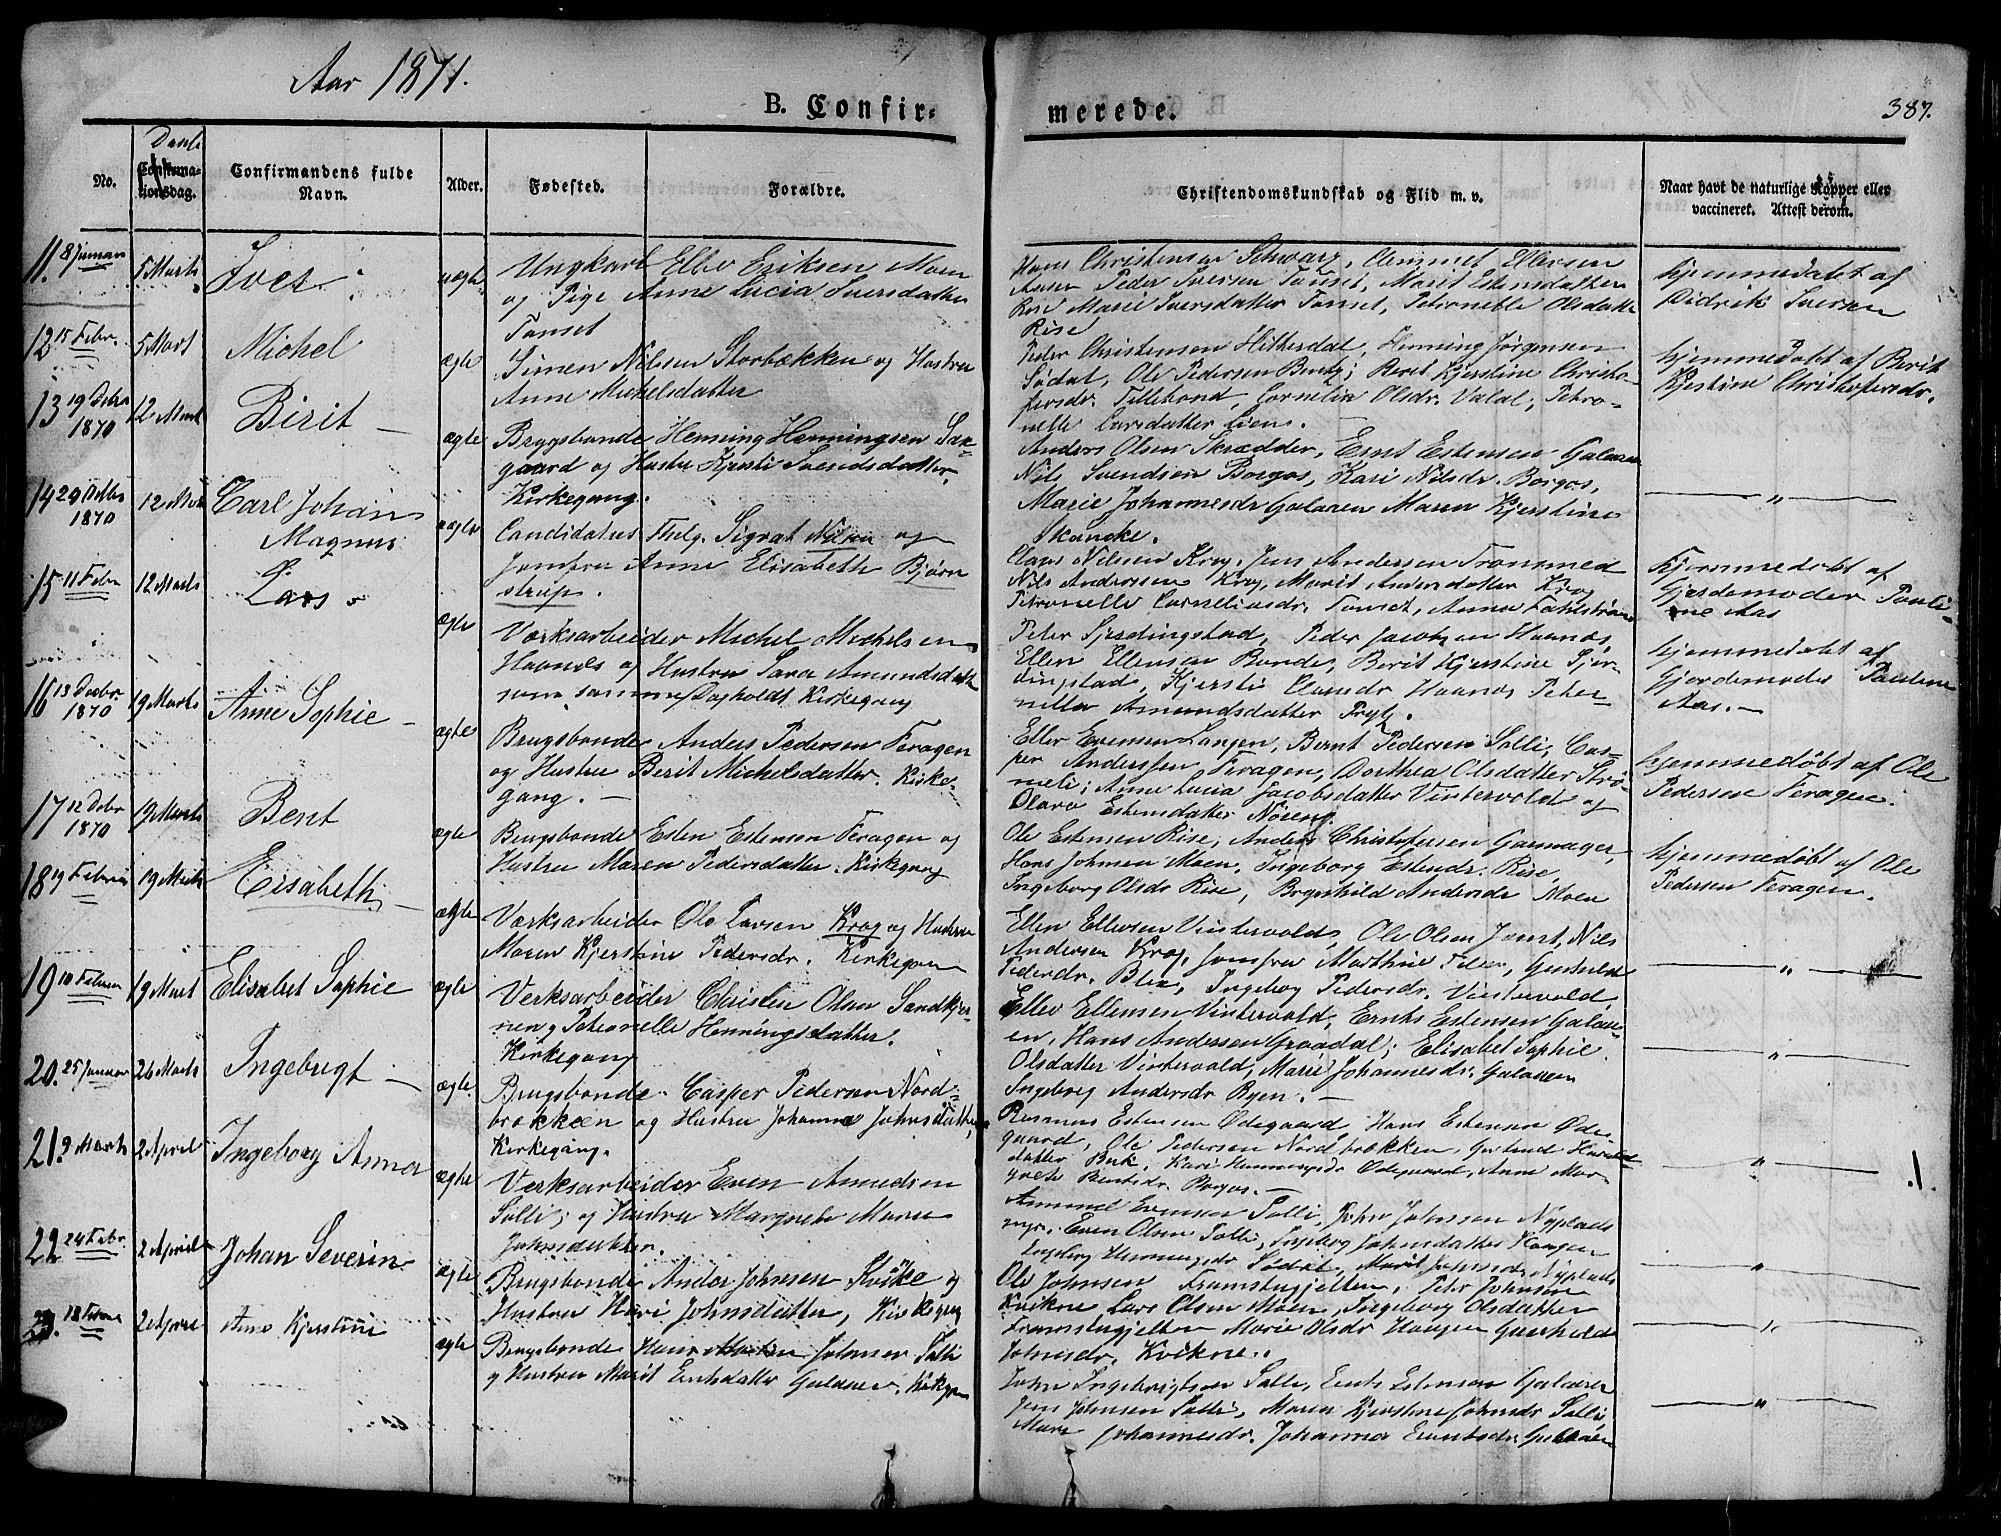 Aar 1871.
B. Confir-
merede.
387.
No.
Daab
Confirma-
tionsdag.
Confirmandens fulde
Navn.
Alder.
Fødested.
Forældre.
Christendomskundskab og Flid m. v.
Naar havt de naturlige Kopper eller
vaccineret. Attest derom.
11. 8 Januar 5 Marts Iver uægte
Ungkarl Ellev Eriksen Moen
og Pige Anne Lucia Iversdatter
Tamset
Hans Christensen Schwarz, Ammet Ellevsen
Aasen Peder Iversen Tamset, Marit Estensdatter
Rose Marie Iversdatter Tamset, Petronelle Olsdatter
Rise
hjemmedøbt af
Didrik Iversen
12 15 Febr. 5 Mart Michel ægte
Simen Nilsen Storbækken og Hustru
Anne Michelsdatter
Peder Christensen Hitterdal, Henning Jørgensen
Sødal, Ole Pedersen Bentz; Berit Kjerstine Christo-
fersdr. Cornelia Olsdr. Valal, Petro-
nelle Larsdatter Lien.
hjemmedøbt af Berit
Kjestine Christofersdr.
13 19 Debr 1870 12 Mart Birit ægte
Brygsbonde Henning Henningsen
gaard og Hustru Kjersti Svendsdatter
Kirkegang.
Anders Olsen Skrædder, Ernt Estensen Galaaen
Nils Svendsen Borgos, Kari Nilsdr. Borgos,
Marie Johannesdr Galaaen Maren Kjerstine
Skancke.
14 29 Debr 1870 12 Mart Carl Johan
Magnus uægte
Candidatus Thelg. Sigvat Nilsen og
Jomfru Anne Elisabeth Bjørn
strup.
Claus Nilsen Krog, Jens Andersen Tronmed
Nils Anderssen Krog, Marit Andersdatter Krog
Petronelle Corneliusdr. Tamset, Anna Fahlstrøm
hjemmedøbt af
Gjordemoder Pauli-
ne Aas
15 11 Febr 12 Marts Lars ægte
Værksarbeider Michel Michelsen
Haanes og Hustru Sara Amundsdatter
samme Dagholdt Kirkegang
Peter Sjerdingstad, Peder Jacobsen Haanes,
Ellen Ellensen Bonde, Berit Kjerstine Sjer-
dingstad, Kjersti Clausdr Haanes Peter-
nille Amundsdatter Prytz.
hjemmedøbt af
Gjordemoder Pauline
Aas.
16 13 Decbr 1870 19 Marts Anne Sophie ægte
Brugsbonde Anders Pedersen Feragen
og Hustru Berit Michelsdatter. Kirke-
gang.
Ellev Evensen Langen, Bernt Pedersen Solli, Cas-
per Anderssen Feragen, Dorthea Olsdatter Strø-
meli; Anne Lucia Jacobsdatter Vintervold og
Olava Estensdatter Nøreng.
hjemmedøbt af Ole
Pedersen Feragen.
17 12 Debr 1870 19 Marts Bent ægte
Brugsbonde Esten Estensen Feragen og
Hustru Maren Pedersdatter. Kirkegang
Ole Estensen Rise, Anders Christofersen Garmager,
Hans Johnsen Moen, Ingeborg Estensdr. Rise,
Ingeborg Olsdr Rise, Andersdr Moen
hjemmedøbt af Ole
Pedersen Feragen.
18 9 Februar 19 Marts Elisabeth ægte
Værksarbeider Ole Larsen Krog og Hustru
Maren Kjerstine Pedersdr. Kirkegang
Ellen Ellevsen Vintervold, Ole Olsen Jamt, Nils
Andersen Krog, Jomfru Marthine, Gunhild
Pedersdr. Ingeborg Pedersdr. Vintervold
19 10 Februar 19 Mart Elisabet Sophie ægte
Verksarbeider Christen Olsen Sandkjer-
nen og Petronelle Henningsdatter.
Kirkegang
Ellev Ellensen Vintervold, Ernts Estensen Galaae-
en, Hans Andersen Graadal; Elisabet Sophie
Olsdatter Vintervold, Marie Johannesdr. Galaaen
Ingeborg Andersdr Ryen.
20. 25 Januar 26 Marts Ingebrigt ægte
Brugsbonde Casper Pedersen Nord-
brækken og Hustru Johanne Johnsdatter,
Kirkegang.
Rasmus Estensen Ødegaard, Hans Estensen Øde-
gaard, Ole Pedersen Nordbrækken, Gertrud Harald-
datter Bek, Kari Henningsdr Ødegaard, Anne Mar-
grete Bentsdr. Borgos.
21. 9 Marts 2 April Ingeborg Anna ægte
Verksarbeider Even Amundsen
Solli, og Hustru Margrete Marie
Johnsdatter.
Ammund Evensen Solli, John Johnsen Nyplads
myr. Even Olsen Solli, Ingeborg Johnsdatter Haagen
Ingeborg Henningsdr Sødal, Marit Johnsdr Nyplads
22 24 Febr. 2 April Johan Severin ægte
Brugsbonde Andor Johnsen Kvikne og
Hustru Kari Johnsdatter, Kirkegang
Ole Johnsen Framstugjelten, Peter Johnsen
Kvikne Lars Olsen Moen, Ingeborg Olsdatter
Framstugjelten Marie Olsdr Haagen Gunhild
Johnsdr. Kvikne.
23. 18 Febr 2 April Ane Kjerstine ægte
Brugsbonde Hans Martin Johnsen Solli
og Hustru Marit Erntsdatter Galaaen. Kirkegang
John Ingebrigtsen Solli, Ernts Estensen Galaaen
Jens Johnsen Solli, Maren Kjerstine Johnsdr Solli
Marie Johannesdr. Johanna Erntsdr. Galaaen